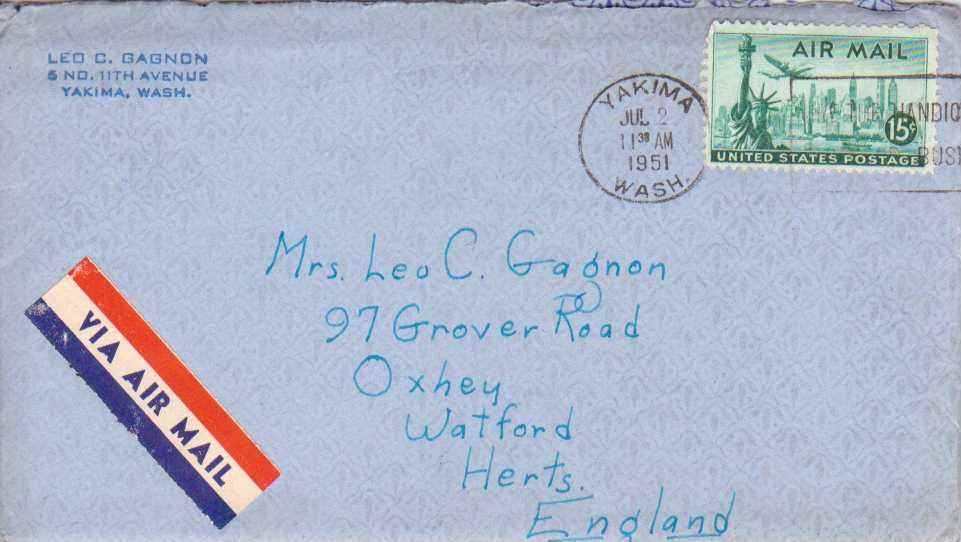 LEO C. GAGNON
5 NO. 11TH AVENUE
YAKIMA, WASH.
YAKIMA
JUL 2
11 30 AM
1951
WASH.
AIR MAIL
15¢
UNITED STATES POSTAGE
HANDIC
BUSI
Mrs. Leo C. Gagnon
97 Grover Road
Oxhey
Watford
Herts.
England
VIA AIR MAIL